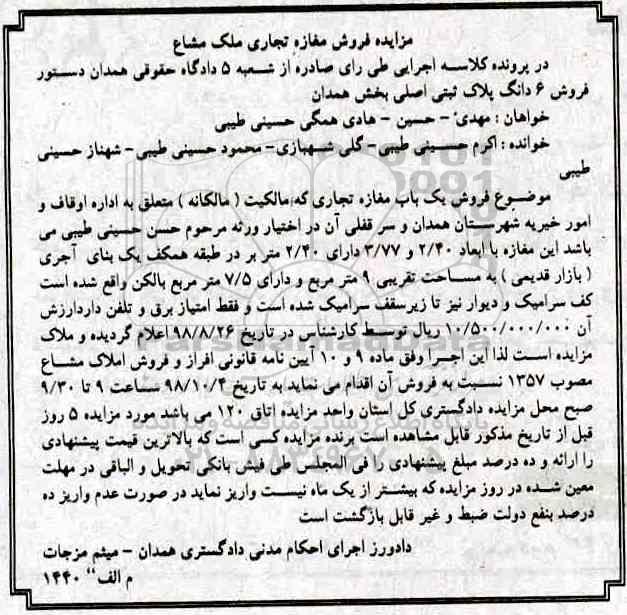 مزایده فروش مغازه تجاری ملک مشاع
در پرونده کلاسه اجرایی طی رای صادره از شعبه ۵ دادگاه حقوقی همدان دستور
فروش ۶ دانگ پلاک ثبتی اصلی بخش همدان
خواهان : مهدی - حسین - هادی همگی حسینی طیبی
خوانده : اکرم حسینی طیبی- گلی شهبازی- محمود حسینی طیبی- شهناز حسینی
طیبی
موضوع فروش یک باب مغازه تجاری که مالکیت ( مالکانه ) متعلق به اداره اوقاف و
امور خیریه شهرستان همدان و سر قفلی آن در اختیار ورثه مرحوم حسن حسینی طیبی می
باشد این مغازه با ابعاد ۲/۴۰ و ۳/۷۷ دارای ۲/۴۰ متر بر در طبقه همکف یک بنای آجری
( بازار قدیمی ) به مساحت تقریبی ۹ متر مربع و دارای ۷/۵ متر مربع بالکن واقع شده است
کف سرامیک و دیوار نیز تا زیرسقف سرامیک شده است و فقط امتیاز برق و تلفن داردارزش
آن ۱۰/۵۰۰/۰۰۰/۰۰۰ ریال توسط کارشناس در تاریخ ۹۸/۸/۲۶ اعلام گردیده و ملاک
مزایده است لذا این اجرا وفق ماده ۹ و ۱۰ آیین نامه قانونی افراز و فروش املاک مشاع
مصوب ۱۳۵۷ نسبت به فروش آن اقدام می نماید به تاریخ ۹۸/۱۰/۴ ساعت ۹ تا ۹/۳۰
صبح محل مزایده دادگستری کل استان واحد مزایده اتاق ۱۲۰ می باشد مورد مزایده ۵ روز
قبل از تاریخ مذکور قابل مشاهده است برنده مزایده کسی است که بالاترین قیمت پیشنهادی
را ارائه و ده درصد مبلغ پیشنهادی را فی المجلس طی فیش بانکی تحویل و الباقی در مهلت
معین شده در روز مزایده که بیشتر از یک ماه نیست واریز نماید در صورت عدم واریز ده
درصد بنفع دولت ضبط و غیر قابل بازگشت است
دادورز اجرای احکام مدنی دادگستری همدان - میثم مزجات
م الف" ۱۴۴۰